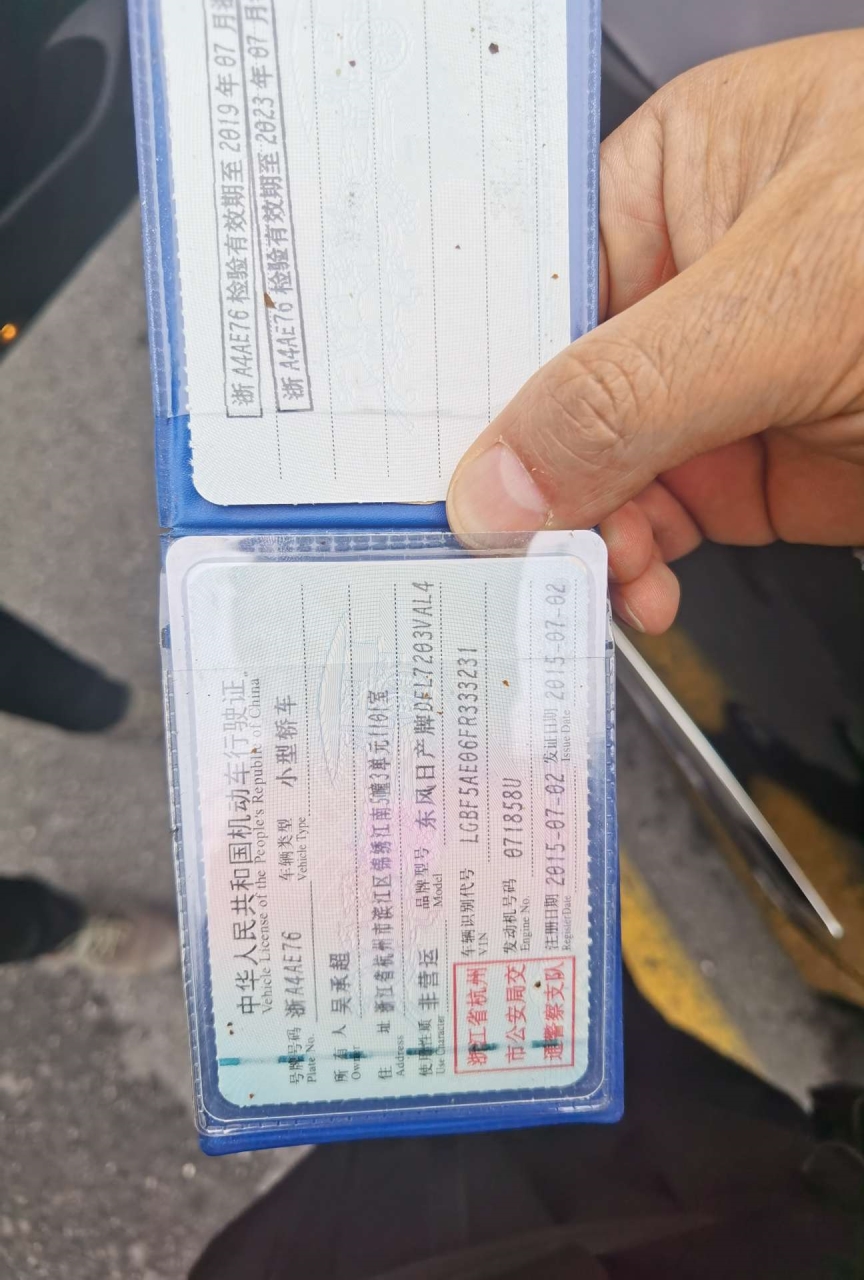 浙A4AE76 检验有效期至 2019 年 07 月
浙A4AE76 检验有效期至 2023 年 07 月
中华人民共和国机动车行驶证
Vehicle License of the People's Republic of China
号牌号码 浙A4AE76 车辆类型 小型轿车
Plate No. Vehicle Type
所有人 吴承超
Owner
住址 浙江省杭州市滨江区锦绣江南5幢3单元1101室
Address
使用性质 非营运 品牌型号 东风日产牌DFL7203VAL4
Use Character Model
浙江省杭州
市公安局交
通警察支队
车辆识别代号 LGBF5AE06FR333231
VIN
发动机号码 071858U
Engine No.
注册日期 2015-07-02 发证日期 2015-07-02
Register Date Issue Date